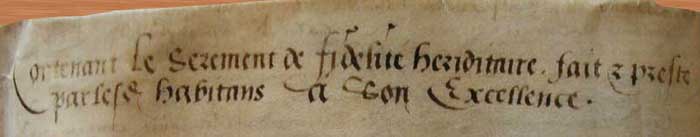 Contenant le Serement de fidelite hereditaire. fait & preste
par lesd habitans a Son Excellence.